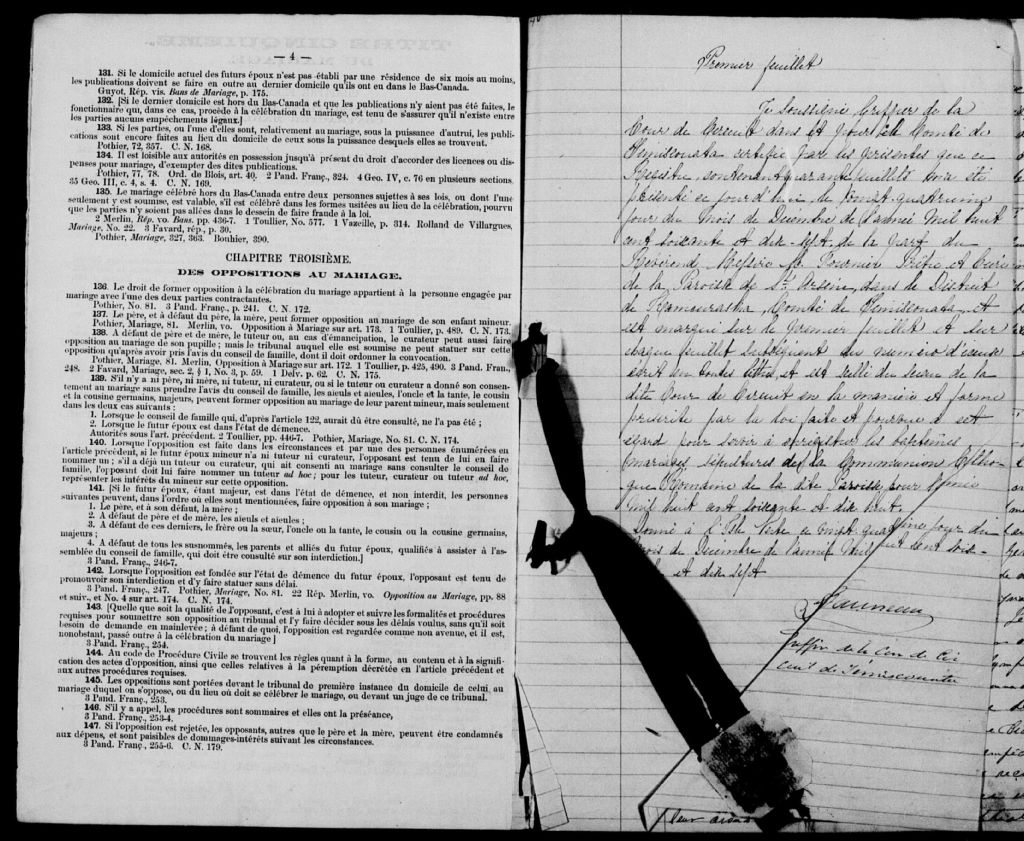 — 4 —
131. Si le domicile actuel des futurs époux n'est pas établi par une résidence de six mois au moins,
les publications doivent se faire en outre au dernier domicile qu'ils ont eu dans le Bas-Canada.
Guyot, Rép. vis. Bans de Mariage, p. 175.
132. [Si le dernier domicile est hors du Bas-Canada et que les publications n'y aient pas été faites, le
fonctionnaire qui, dans ce cas, procède à la célébration du mariage, est tenu de s'assurer qu'il n'existe entre
les parties aucuns empêchements légaux.]
133. Si les parties, ou l'une d'elles sont, relativement au mariage, sous la puissance d'autrui, les publi-
cations sont encore faites au lieu du domicile de ceux sous la puissance desquels elles se trouvent.
Pothier, 72, 357. C. N. 168.
134. Il est loisible aux autorités en possession jusqu'à présent du droit d'accorder des licences ou dis-
penses pour mariage, d'exempter des dites publications.
Pothier, 77, 78. Ord. de Blois, art. 40. 2 Pand. Franç., 324. 4 Geo. IV, c. 76 en plusieurs sections.
35 Geo. III, c. 4, s. 4. C. N. 169.
135. Le mariage célébré hors du Bas-Canada entre deux personnes sujettes à ses lois, ou dont l'une
seulement y est soumise, est valable, s'il est célébré dans les formes usitées au lieu de la célébration, pourvu
que les parties n'y soient pas allées dans le dessein de faire fraude à la loi.
2 Merlin, Rép. vo. Bans, pp. 436-7. 1 Toullier, No. 577. 1 Vazeille, p. 314. Rolland de Villargues,
Mariage, No. 22. 3 Favard, rép., p. 30.
Pothier, Mariage, 327, 363. Bouhier, 390.
CHAPITRE TROISIÈME.
DES OPPOSITIONS AU MARIAGE.
136. Le droit de former opposition à la célébration du mariage appartient à la personne engagée par
mariage avec l'une des deux parties contractantes.
Pothier, No. 81. 3 Pand. Franç., p. 241. C. N. 172.
137. Le père, et à défaut du père, la mère, peut former opposition au mariage de son enfant mineur.
Pothier, Mariage, 81. Merlin, vo. Opposition à Mariage sur art. 173. 1 Toullier, p. 489. C. N. 173.
138. A défaut de père et de mère, le tuteur, ou, au cas d'émancipation, le curateur peut aussi faire
opposition au mariage de son pupille; mais le tribunal auquel elle est soumise ne peut statuer sur cette
opposition qu'après avoir pris l'avis du conseil de famille, dont il doit ordonner la convocation.
Pothier, Mariage, 81. Merlin, Opposition à Mariage sur art. 172. 1 Toullier, p. 425, 490. 3 Pand. Fran.,
248. 2 Favard, Mariage, sec. 2, § 1, No. 3, p. 59. 1 Delv. p. 62. C. N. 175.
139. S'il n'y a ni père, ni mère, ni tuteur, ni curateur, ou si le tuteur ou curateur a donné son consen-
tement au mariage sans prendre l'avis du conseil de famille, les aïeuls et aïeules, l'oncle et la tante, le cousin
et la cousine germains, majeurs, peuvent former opposition au mariage de leur parent mineur, mais seulement
dans les deux cas suivants:
1. Lorsque le conseil de famille qui, d'après l'article 122, aurait dû être consulté, ne l'a pas été;
2. Lorsque le futur époux est dans l'état de démence.
Autorités sous l'art. précédent. 2 Toullier, pp. 446-7. Pothier, Mariage, No. 81. C. N. 174.
140. Lorsque l'opposition est faite dans les circonstances et par une des personnes énumérées en
l'article précédent, si le futur époux mineur n'a ni tuteur ni curateur, l'opposant est tenu de lui en faire
nommer un; s'il a déjà un tuteur ou curateur, qui ait consenti au mariage sans consulter le conseil de
famille, l'opposant doit lui faire nommer un tuteur ad hoc; pour les tuteur, curateur ou tuteur ad hoc,
représenter les intérêts du mineur sur cette opposition.
141. [Si le futur époux, étant majeur, est dans l'état de démence, et non interdit, les personnes
suivantes peuvent, dans l'ordre où elles sont mentionnées, faire opposition à son mariage;
1. Le père, et à son défaut, la mère;
2. A défaut de père et de mère, les aïeuls et aïeules;
3. A défaut de ces derniers, le frère ou la sœur, l'oncle ou la tante, le cousin ou la cousine germains,
majeurs;
4. A défaut de tous les susnommés, les parents et alliés du futur époux, qualifiés à assister à l'as-
semblée du conseil de famille, qui doit être consulté sur son interdiction.]
3 Pand. Franç., 246-7.
142. Lorsque l'opposition est fondée sur l'état de démence du futur époux, l'opposant est tenu de
promouvoir son interdiction et d'y faire statuer sans délai.
3 Pand. Franç., 247. Pothier, Mariage, No. 81. 22 Rép. Merlin, vo. Opposition au Mariage, pp. 88
et suiv., et No. 4 sur art. 174. C. N. 174.
143. [Quelle que soit la qualité de l'opposant, c'est à lui à adopter et suivre les formalités et procédures
requises pour soumettre son opposition au tribunal et l'y faire décider sous les délais voulus, sans qu'il soit
besoin de demande en mainlevée; à défaut de quoi, l'opposition est regardée comme non avenue, et il est,
nonobstant, passé outre à la célébration du mariage]
3 Pand. Franç., 254.
144. Au code de Procédure Civile se trouvent les règles quant à la forme, au contenu et à la signifi-
cation des actes d'opposition, ainsi que celles relatives à la péremption décrétée en l'article précédent et
aux autres procédures requises.
145. Les oppositions sont portées devant le tribunal de première instance du domicile de celui au
mariage duquel on s'oppose, ou du lieu où doit se célébrer le mariage, ou devant un juge de ce tribunal.
3 Pand. Franç., 253.
146. S'il y a appel, les procédures sont sommaires et elles ont la préséance,
3 Pand. Franç., 253-4.
147. Si l'opposition est rejetée, les opposants, autres que le père et la mère, peuvent être condamnés
aux dépens, et sont paisibles de dommages-intérêts suivant les circonstances.
3 Pand. Franç., 255-6. C. N. 179.
Premier feuillet
Je Soussigné Greffier de la
Cour de Circuit dans et pour le Comté de
Témiscouata certifie par les présentes que ce
Registre contenant quarante feuillets m'a été
présenté ce jourd'hui le vingt-quatrième
jour du mois de Décembre de l'année mil huit
cent soixante et dix-sept de la part du
Révérend Messire M. Fournier Prêtre et Curé
de la Paroisse de St. Ursein, dans le District
de Kamouraska, Comté de Témiscouata, et
est marqué sur le premier feuillet et sur
chaque feuillet subséquent du numéro d'iceux
écrit en toutes lettres et est scellé du sceau de la
dite Cour de Circuit en la manière et forme
prescrite par la loi faite et pourvue à cet
égard pour servir à enregistrer les baptêmes
mariages sépultures de la Communion Catholi-
que Romaine de la dite Paroisse pour l'année
mil huit cent soixante et dix huit.
Donné à l'Isle Verte ce vingt-quatrième jour du
mois de Décembre de l'année mil huit cent soix-
et dix sept
Greffier de la Cour de Cir
cuit de Témiscouata